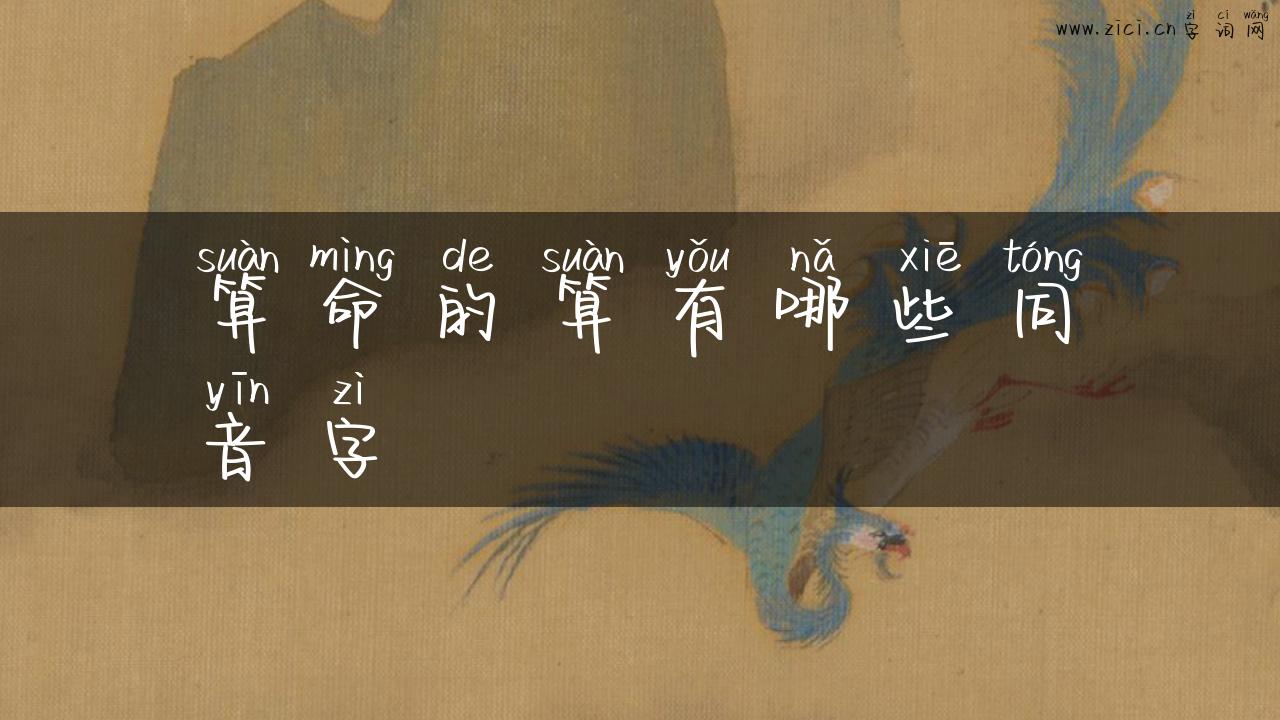 zì cí wǎng
www.zici.cn字词网
suàn mìng de suàn yǒu nǎ xiē tóng
算命的算有哪些同
yīn zì
音字